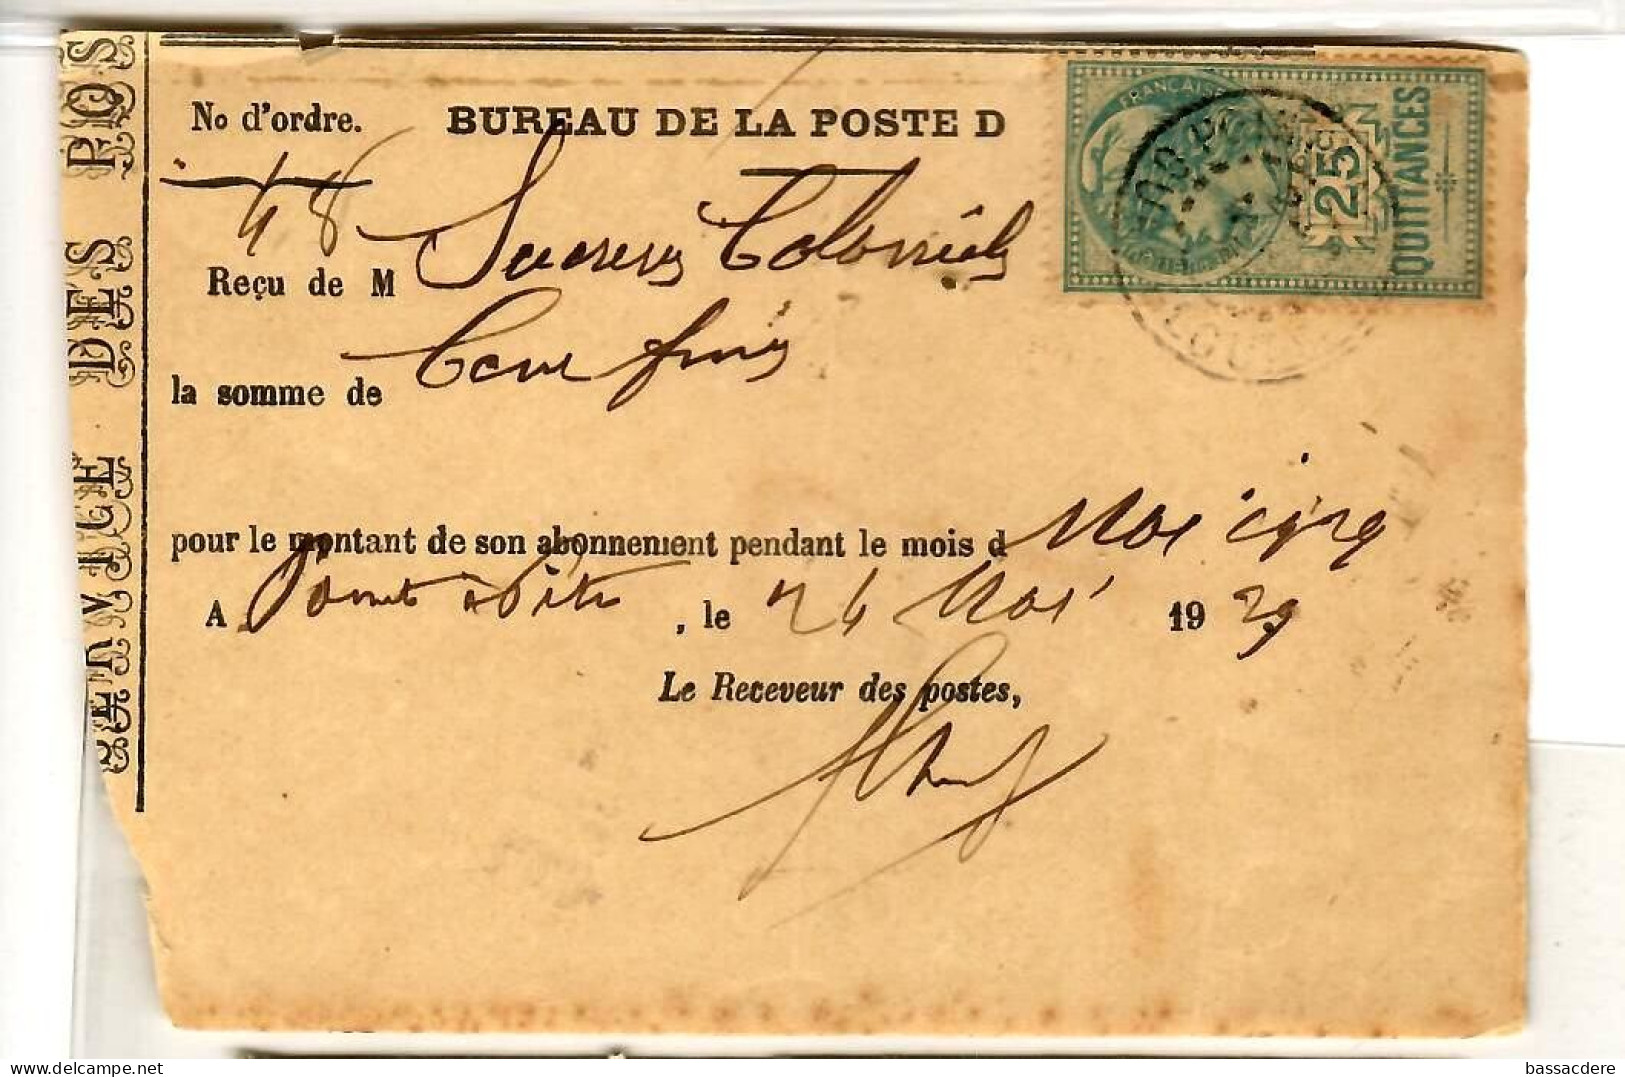 SERVICE DES POS
No d'ordre. BUREAU DE LA POSTE D
48
Reçu de M Sucreries Coloniales
la somme de francs
pour le montant de son abonnement pendant le mois d Mai
A Pointe à Pitre, le 24 Mai 1929
Le Receveur des postes,
FRANÇAISE
25
QUITTANCES
bassacdere